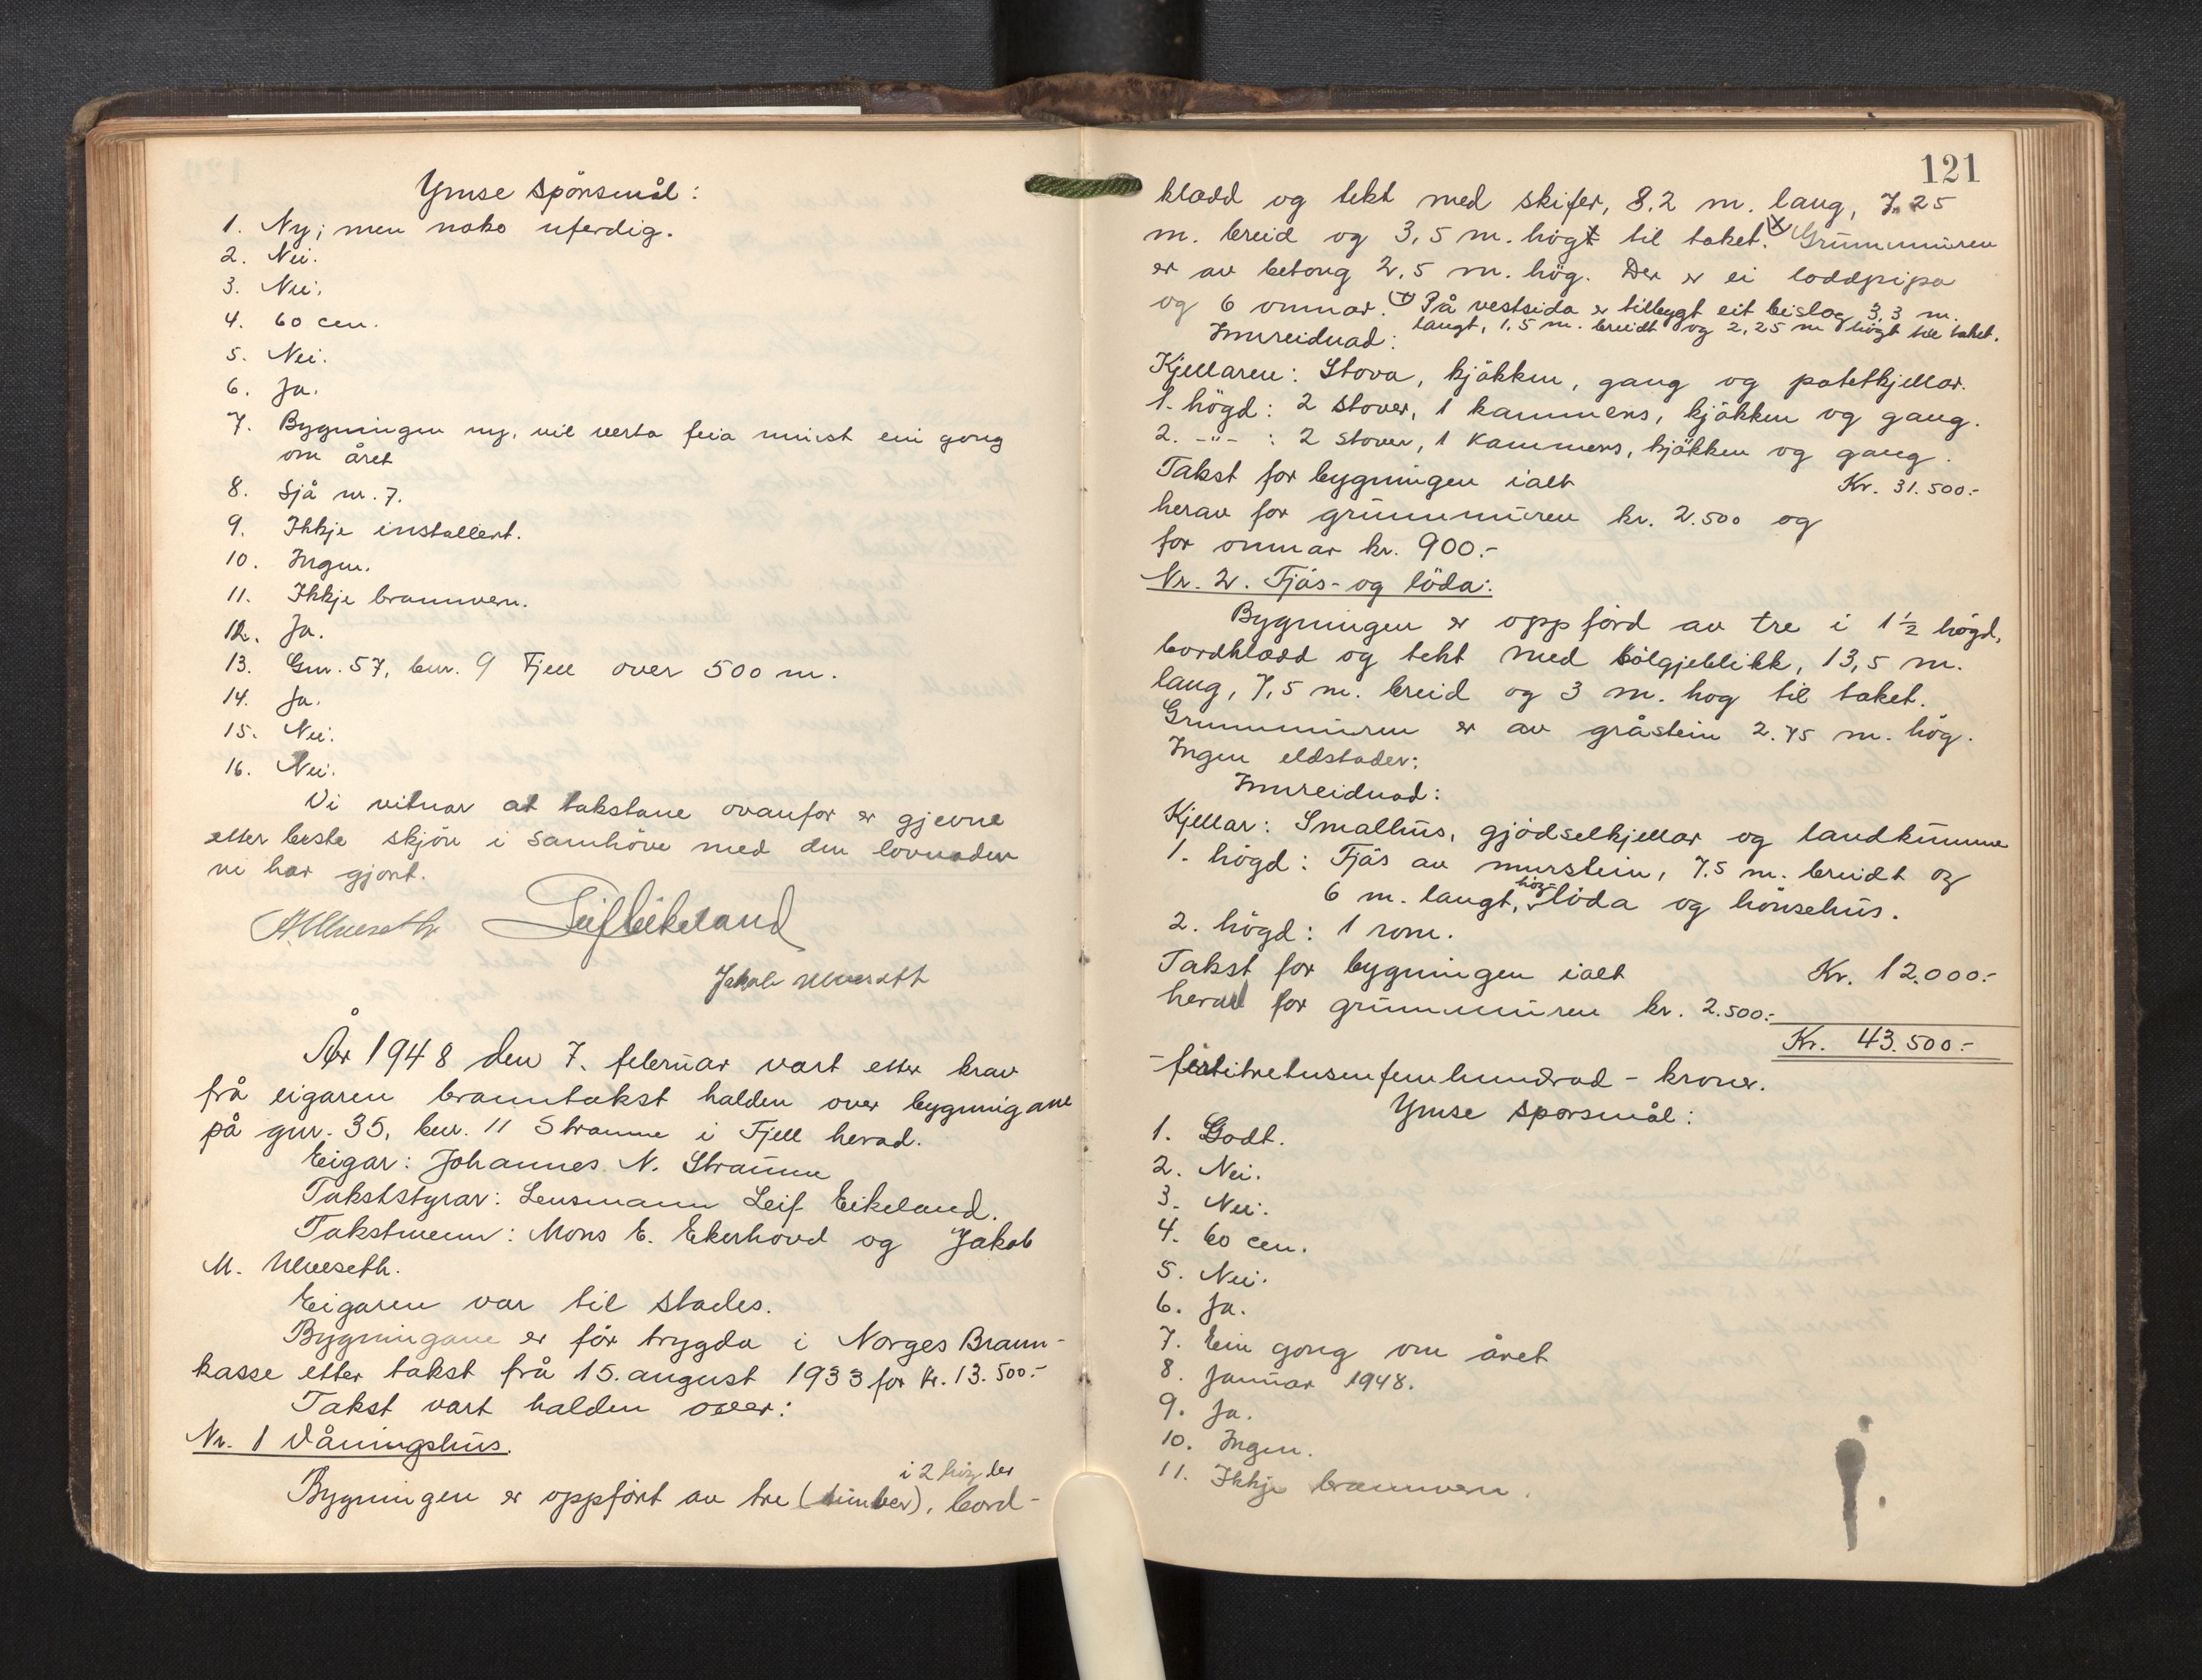 Ymse spörsmål:
1. Ny; men noko uferdig.
2. Nei.
3. Nei.
4. 60 cm.
5. Nei.
6. Ja.
7. Bygningen ny, vil verta feia minst ein gong
om året
8. Sjå nr. 7.
9. Ikkje installert.
10. Ingen.
11. Ikkje brannvern.
12. Ja.
13. Gnr. 57, bnr. 9 Fjell over 500 m.
14. Ja.
15. Nei.
16. Nei.
Vi vitnar at takstane ovanfor er gjevne
etter beste skjön i samhöve med den lovnaden
vi har gjort.
Leif Eikeland
Jakob Ulveseth
År 1948 den 7. februar vart etter krav
frå eigaren branntakst halden over bygningane
på gnr. 35, bnr. 11 Straume i Fjell herad.
Eigar: Johannes N. Straume
Takststyrar: Lensmann Leif Eikeland.
Takstmenn: Mons E. Ekerhovd og Jakob
M. Ulveseth.
Eigaren var til stades.
Bygningane er för trygda i Norges Brann-
kasse etter takst frå 15. august 1933 for kr. 13.500.-
Takst vart halden over:
Nr. 1 Våningshus.
i 2 högder
Bygningen er oppfört av tre (timber), bord-
121
klædd og tekt med skifer, 8.2 m. lang, 7.25
m. breid og 3,5 m. högt til taket. x) Grunnmuren
er av betong 2,5 m. hög. Der er ei loddpipa
og 6 omnar. x) På vestsida er tilbygt eit bislag 3,3 m.
langt, 1,5 m. breidt og 2,25 m högt til taket.
Innreidnad:
Kjellaren: Stova, kjökken, gang og potetkjellar.
1. högd: 2 stover, 1 kammens, kjökken og gang.
2. -"- : 2 stover, 1 kammens, kjökken og gang.
Takst for bygningen ialt Kr. 31.500.-
herav for grunnmuren kr. 2.500 og
for omnar kr. 900.-
Nr. 2. Fjös- og löda:
Bygningen er oppförd av tre i 1 1/2 högd,
bordklædd og tekt med bölgjeblikk, 13,5 m.
lang, 7,5 m. breid og 3 m. hög til taket.
Grunnmuren er av gråstein 2.75 m. hög.
Ingen eldstader:
Innreidnad:
Kjellar: Smalhus, gjödselkjellar og landkumme
1. högd: Fjös av murstein, 7.5 m. breidt og
6 m. langt, höy-löda og hönsehus.
2. högd: 1 rom.
Takst for bygningen ialt Kr. 12.000.-
herav for grunnmuren kr. 2.500.-
Kr. 43.500.-
-förtitretusenfemhundrad - kroner.
Ymse sporsmål:
1. Godt.
2. Nei.
3. Nei.
4. 60 cm.
5. Nei.
6. Ja.
7. Ein gong om året
8. Januar 1948.
9. Ja.
10. Ingen.
11. Ikkje brannvern.